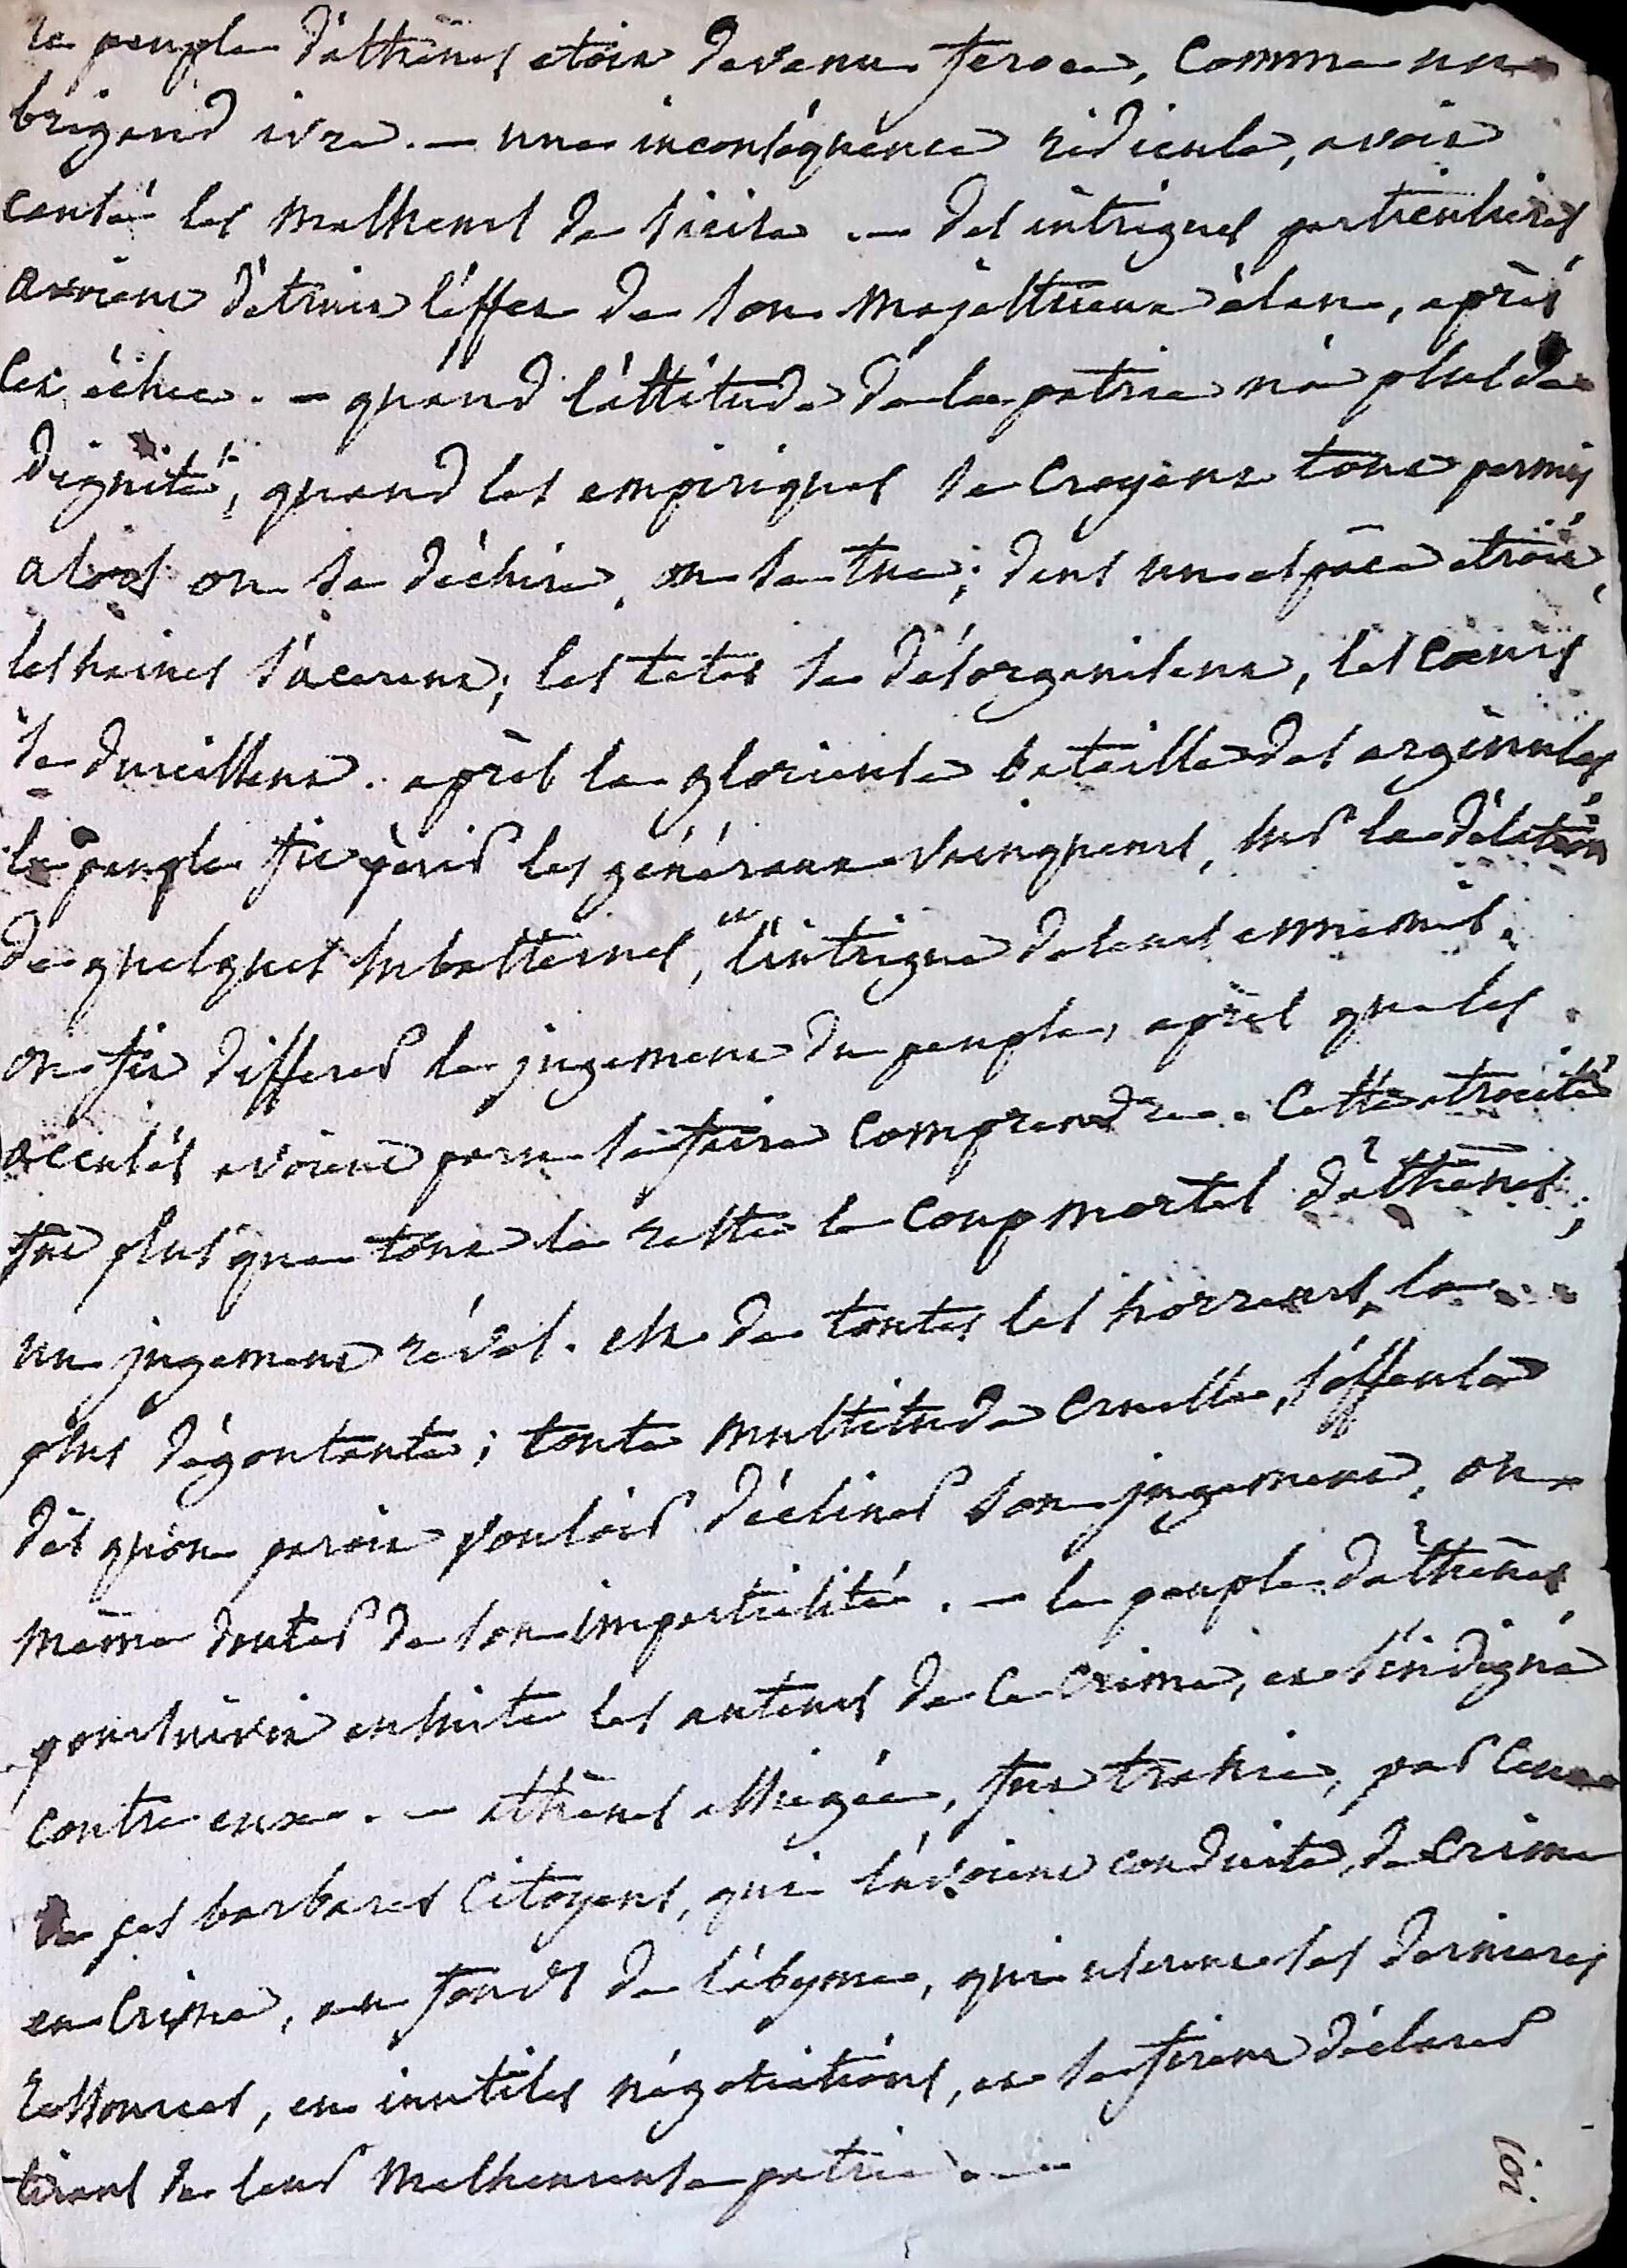 le peuple d'athênes etoit devenu feroce, comme un
brigand ivre. — une inconséquence ridicule, avoit
causé les malheurs de sicile. — des intrigues particulieres
avoient détruit l'effet de son majestueux élan, après
cet échec. — quand l'attitude de la patrie n'a plus de
dignité, quand les empiriques se croyent tout permis
alors on se déchire, on se tue; dans un espace etroit,
les haines s'acerent; les tetes se désorganisent, les cœurs
se durcissent. après la glorieuse bataille des arginuses,
le peuple fit périr les généraux vainqueurs, sur la délation
de quelques subalternes, et l'intrigue de leurs ennemis.
on fit differer le jugement du peuple, après que les
accusés avoient paru se faire comprendre. Cette atrocité
fut plus que tout le reste le coup mortel d'athênes;
un jugement révol. est de toutes les horreurs, la
plus dégoutante; toute multitude cruelle, s'offense
dès qu'on paroit vouloir décliner son jugement, ou
même douter de son impartialité. — le peuple d'athênes,
poursuivit ensuite les auteurs de ce crime, et s'indigna
contre eux. — athênes assiegée, fut trahie, par ceux
de ses barbares citoyens, qui l'avoient conduite, de crime
en crime, au fonds de l'abyme, qui userent ses dernieres
ressources, en inutiles négotiations, et se firent déclarer
tirans de leur malheureuse patrie. —